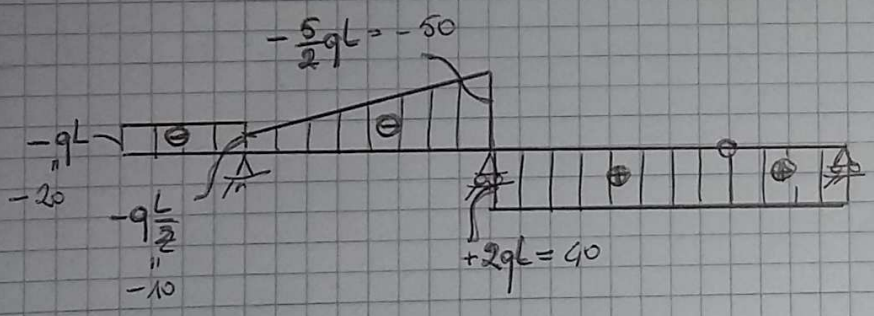 - 5/2 qL = -50
-qL
"
-20
⊖
⊖
-q L/2
"
-10
⊕
⊕
+2qL = 40